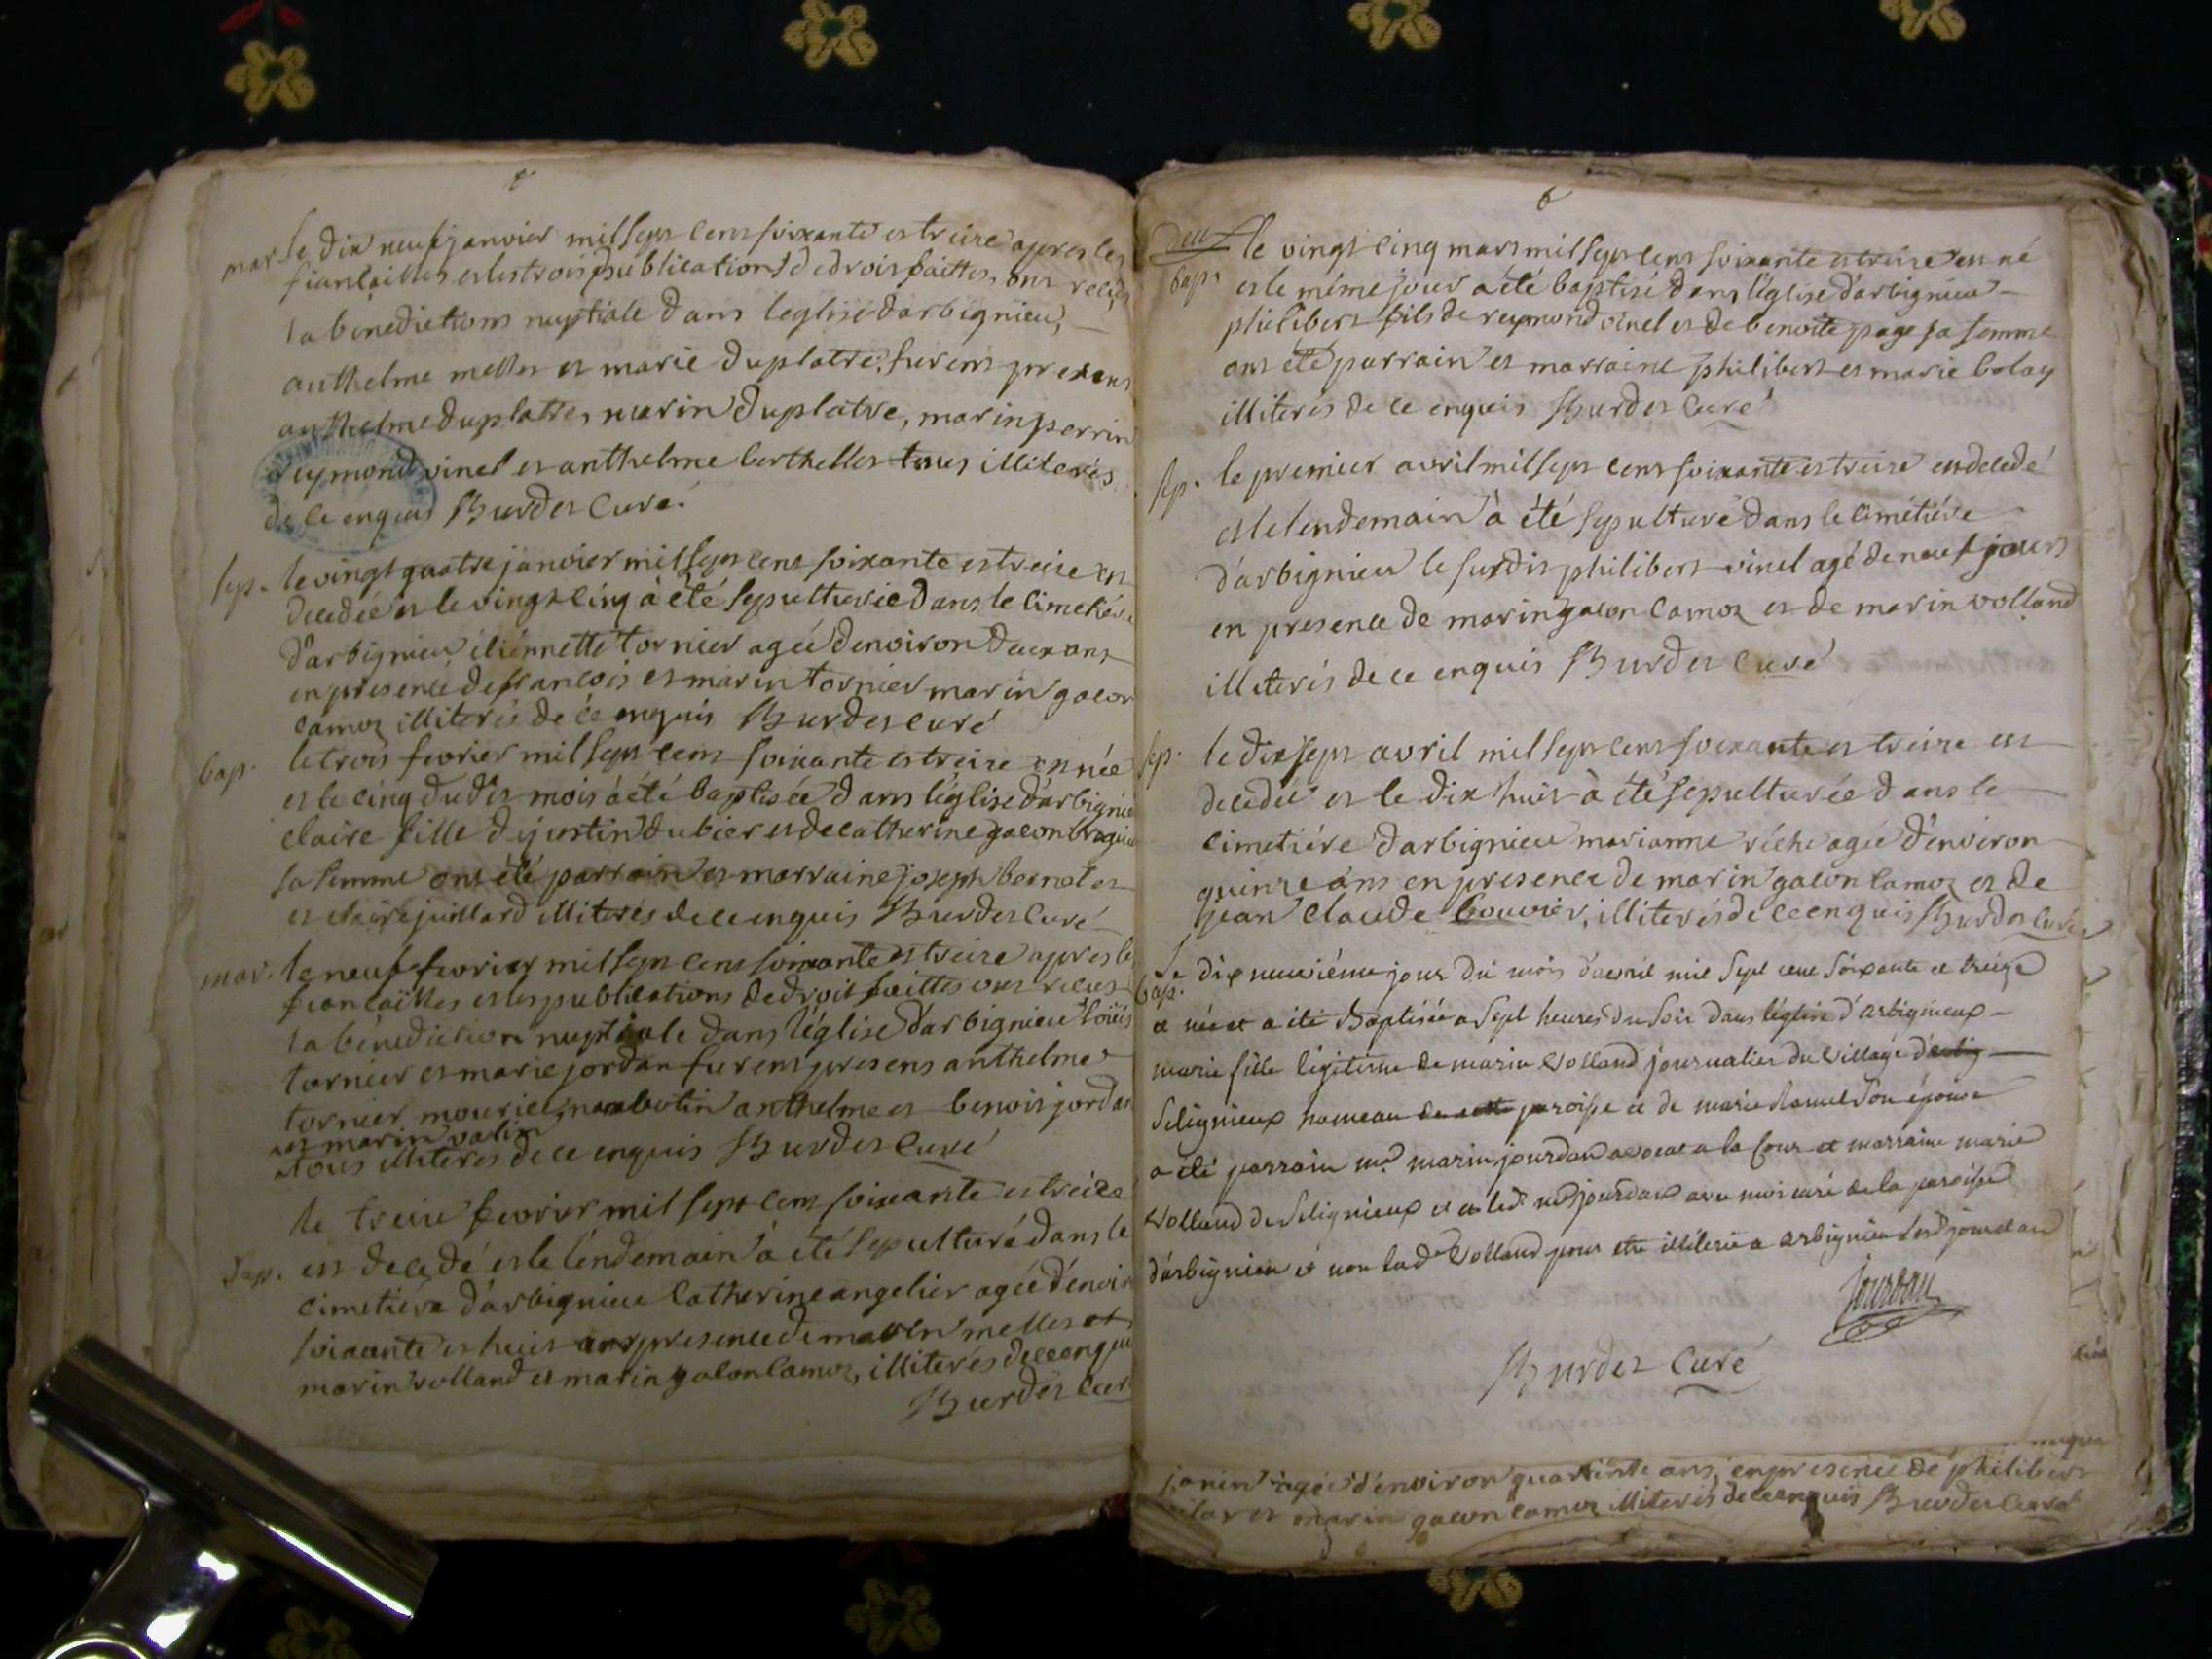 mar. le dix neuf janvier mil sept cent soixante et treize apres les
fiancailles et les trois publications de droit faittes, ont recus
la benediction nuptiale dans leglise darbignieu,
anthelme mettes et marie duplatre. furent presens
anthelme duplattre, marin duplatre, marin perrin
reymond vinel et anthelme berthelles tous illiterés
de ce enquis Burdet Curé.
sep. le vingt quatre janvier mil sept cent soixante et treize est
decedée et le vingt cinq à été sepulturée dans le cimetiére
d'arbignieu étiennette tornier agée denviron deux ans
en presence de francois et marin tornier marin gacon
camoz illiterés de ce enquis Burdet curé
bap. le trois fevrier mil sept cent soixante et treize est née
et le cinq dudit mois à été baptisée dans léglise d'arbignieu
claire fille de justin dubier et de catherine gacon braguie
sa femme ont été parrain et marraine joseph bernet et
et claire juillard illiterés de ce enquis Burdet Curé
mar. le neuf fevrier mil sept cent soixante et treize apres le
fiancaïlles et les publications de droit faittes ont recus
la bénediction nuptiale dans l'église d'arbignieu louis
tornier et marie jordan furent presens anthelme
tornier mourier, marin butin anthelme et benoit jordan
et marin vatin
tous illiteres de ce enquis Burdet Curé
le treize fevrier mil sept cent soixante et treize
Sep. est decedé et le lendemain à été sepulturé dans le
cimetiere d'arbignieu Catherine angelier agée d'envir
soixante et huit ans presence de marin mettes et
marin volland et marin gacon camoz, illiterés de ce enqui
Burdet Cur
6
deux le vingt cinq mars mil sept cent soixante et treize est né
bap. et le même jour a été baptisé dans l'église d'arbignieu
philibert fils de reymond vinel et de benoite page sa femme
ont été parrain et marraine philibert et marie bolay
illiterés de ce enquis Burdet Curé
sep. le premier avril mil sept cent soixante et treize est decedé
et le lendemain à été sepulturé dans le cimétiére
d'arbignieu le susdit philibert vinel agé de neuf jours
en presence de marin gacon camoz et de marin volland
illiterés de ce enquis Burdet Curé
sep. le dix sept avril mil sept cent soixante et treize est
decedée et le dix huit à été sepulturée dans le
cimetiére darbignieu marianne réche agée d'environ
quinze ans en presence de marin gacon camoz et de
jean claude bouvier, illiterés de ce enquis Burdet Curé
Le dix neuviéme jour du mois d'avril mil sept cent soixante et treize
bap. est née et a été Baptisée a sept heures du soir dans léglise d'arbignieux
marie fille légitime de marin Volland journalier du village d'arbig
Selignieux hameau de cette paroisse et de marie Ramel son épouse
a été parrain mr marin jourdan avocat a la Cour et marraine marie
Volland de Selignieux et a ledt mr jourdan avec moi curé de la paroisse
d'arbignieu et non ladte Volland pour etre illiterée a arbignieu lesd jour et an
Jourdan
Burdet Curé
janin agée d'environ quarante ans, en presence de philibert
et marin gacon camoz illiterés de ce enquis Burdet Curé